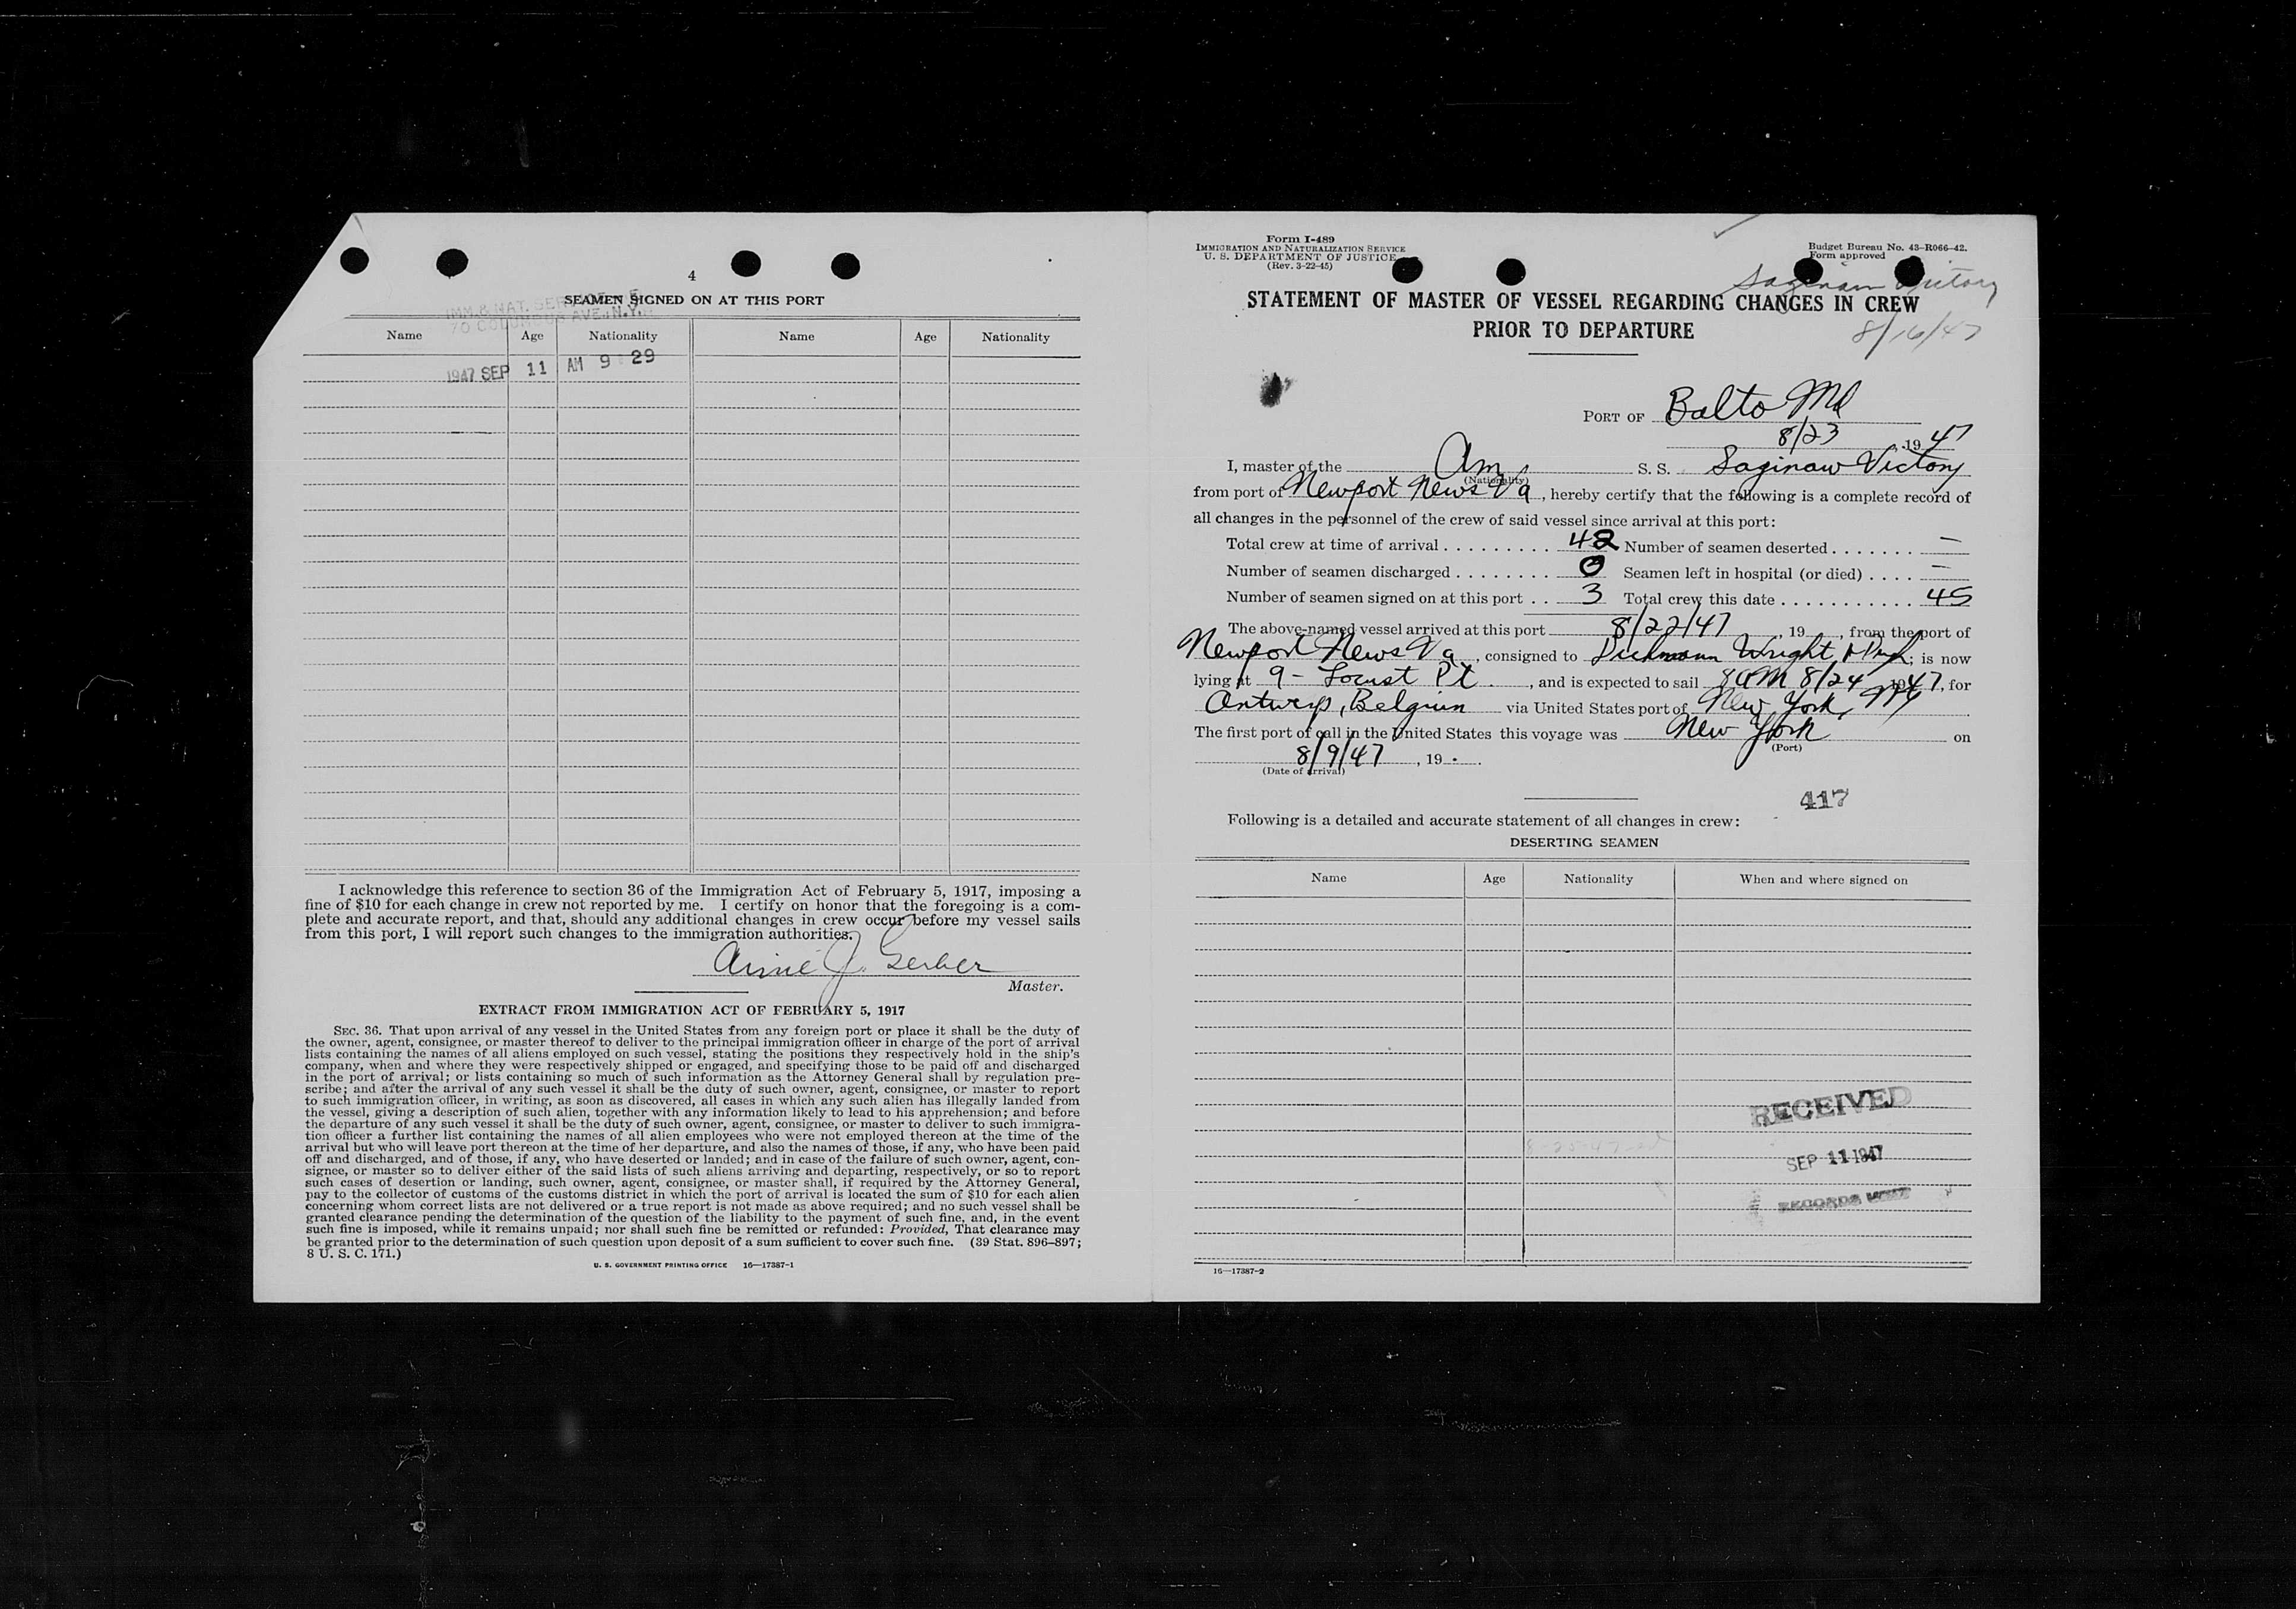 4
IMM. & NAT. SERVICE
70 COLUMBUS AVE., N.Y.
SEAMEN SIGNED ON AT THIS PORT
Name Age Nationality Name Age Nationality
1947 SEP 11 AM 9 29
I acknowledge this reference to section 36 of the Immigration Act of February 5, 1917, imposing a
fine of $10 for each change in crew not reported by me. I certify on honor that the foregoing is a com-
plete and accurate report, and that, should any additional changes in crew occur before my vessel sails
from this port, I will report such changes to the immigration authorities.
Aimé J. Gerber
Master.
EXTRACT FROM IMMIGRATION ACT OF FEBRUARY 5, 1917
SEC. 36. That upon arrival of any vessel in the United States from any foreign port or place it shall be the duty of
the owner, agent, consignee, or master thereof to deliver to the principal immigration officer in charge of the port of arrival
lists containing the names of all aliens employed on such vessel, stating the positions they respectively hold in the ship's
company, when and where they were respectively shipped or engaged, and specifying those to be paid off and discharged
in the port of arrival; or lists containing so much of such information as the Attorney General shall by regulation pre-
scribe; and after the arrival of any such vessel it shall be the duty of such owner, agent, consignee, or master to report
to such immigration officer, in writing, as soon as discovered, all cases in which any such alien has illegally landed from
the vessel, giving a description of such alien, together with any information likely to lead to his apprehension; and before
the departure of any such vessel it shall be the duty of such owner, agent, consignee, or master to deliver to such immigra-
tion officer a further list containing the names of all alien employees who were not employed thereon at the time of the
arrival but who will leave port thereon at the time of her departure, and also the names of those, if any, who have been paid
off and discharged, and of those, if any, who have deserted or landed; and in case of the failure of such owner, agent, con-
signee, or master so to deliver either of the said lists of such aliens arriving and departing, respectively, or so to report
such cases of desertion or landing, such owner, agent, consignee, or master shall, if required by the Attorney General,
pay to the collector of customs of the customs district in which the port of arrival is located the sum of $10 for each alien
concerning whom correct lists are not delivered or a true report is not made as above required; and no such vessel shall be
granted clearance pending the determination of the question of the liability to the payment of such fine, and, in the event
such fine is imposed, while it remains unpaid; nor shall such fine be remitted or refunded: Provided, That clearance may
be granted prior to the determination of such question upon deposit of a sum sufficient to cover such fine. (39 Stat. 896–897;
8 U. S. C. 171.)
U. S. GOVERNMENT PRINTING OFFICE 16—17387-1
Form I-489
IMMIGRATION AND NATURALIZATION SERVICE
U. S. DEPARTMENT OF JUSTICE
(Rev. 3-22-45)
Budget Bureau No. 43–R066–42.
Form approved
Saginaw Victory
8/16/47
STATEMENT OF MASTER OF VESSEL REGARDING CHANGES IN CREW
PRIOR TO DEPARTURE
PORT OF Balto Md
8/23 19 47
I, master of the Am S. S. Saginaw Victory
(Nationality)
from port of Newport News Va, hereby certify that the following is a complete record of
all changes in the personnel of the crew of said vessel since arrival at this port:
Total crew at time of arrival . . . . . . . . . 42 Number of seamen deserted . . . . . . . —
Number of seamen discharged . . . . . . . . 0 Seamen left in hospital (or died) . . . . —
Number of seamen signed on at this port . . 3 Total crew this date . . . . . . . . . . . 45
The above-named vessel arrived at this port 8/22/47, 19 , from the port of
Newport News Va, consigned to Wright ; is now
lying at 9 - Locust Pt, and is expected to sail 8 AM 8/24 1947, for
Antwerp, Belgium via United States port of New York, NY
The first port of call in the United States this voyage was New York on
(Port)
8/9/47, 19 .
(Date of arrival)
417
Following is a detailed and accurate statement of all changes in crew:
DESERTING SEAMEN
Name Age Nationality When and where signed on
RECEIVED
SEP 11 1947
RECORDS
16—17387-2